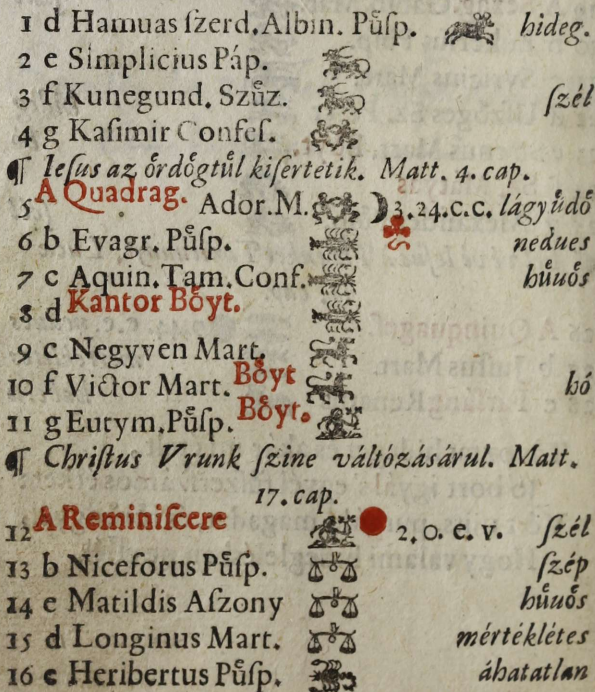 1 d Hamuas ſzerd. Albin. Pűſp. hideg.
2 e Simplicius Páp.
3 f Kunegund. Szűz. ſzél
4 g Kaſimir Confeſ.
¶ Ieſus az ördögtűl kiſertetik. Matt. 4. cap.
5 A Quadrag. Ador. M. ☽ 3.24.c.c. lágy űdő
6 b Evagr. Pűſp. nedues
7 c Aquin. Tam. Conf. hűuös
8 d Kantor Böyt.
9 c Negyven Mart.
10 f Victor Mart. Böyt hó
11 g Eutym. Pűſp. Böyt.
¶ Chriſtus Vrunk ſzine váltózásárul. Matt.
17. cap.
12 A Reminiſcere 2.0.e.v. ſzél
13 b Niceforus Pűſp. ſzép
14 e Matildis Aſzony hűuös
15 d Longinus Mart. mértéklétes
16 e Heribertus Pűſp. áhatatlan